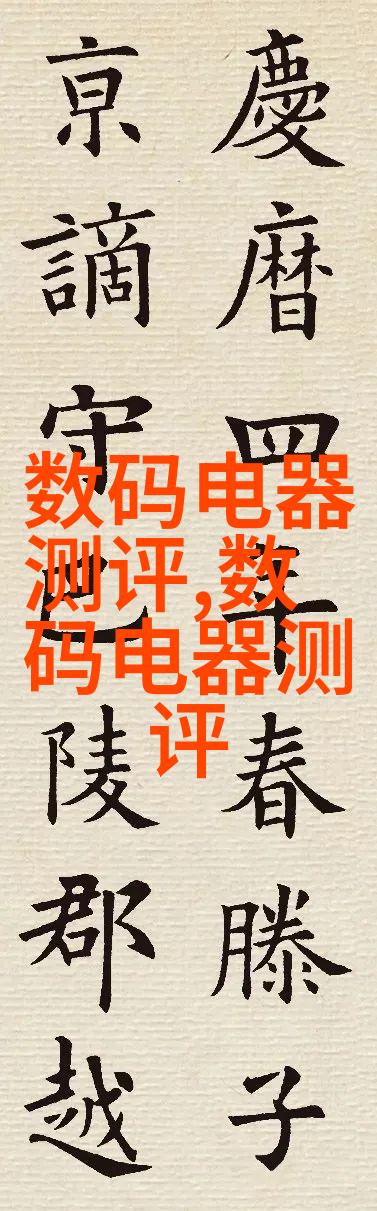 慶曆四年春滕子
京謫守巴陵郡越
数码电器
测评,数
码电器测
评